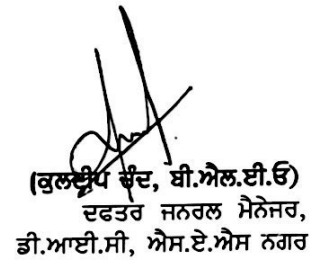 (ਕੁਲਦੀਪ ਚੰਦ, ਬੀ.ਐਲ.ਈ.ਓ)
ਦਫਤਰ ਜਨਰਲ ਮੈਨੇਜਰ,
ਡੀ.ਆਈ.ਸੀ, ਐਸ.ਏ.ਐਸ ਨਗਰ